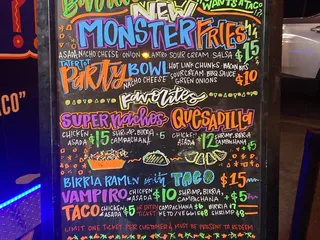 WANTS A TACO?
NEW
MONSTER FRIES $15
ASADA NACHO CHEESE ONION CILANTRO SOUR CREAM SALSA
TATER TOT
PARTY BOWL HOT LINK CHUNKS. BACON $10
NACHO CHEESE SOUR CREAM BBQ SAUCE
GREEN ONIONS
Favorites
SUPER Nachos QUESADILLA
CHICKEN $15 SHRIMP, BIRRIA CHICKEN $12 SHRIMP, BIRRIA
ASADA CAMPACHANA ASADA CAMPACHANA
BIRRIA RAMEN TACO $15
VAMPIRO CHICKEN $10 SHRIMP, BIRRIA
ASADA CAMPACHANA
TACO CHICKEN TICKET CAMPACHANA $ BIRRIA
ASADA $5 KETO/VEGGIE $8 SHRIMP $8
LIMIT ONE TICKET PER CUSTOMER & MUST BE PRESENT TO REDEEM
ACO"